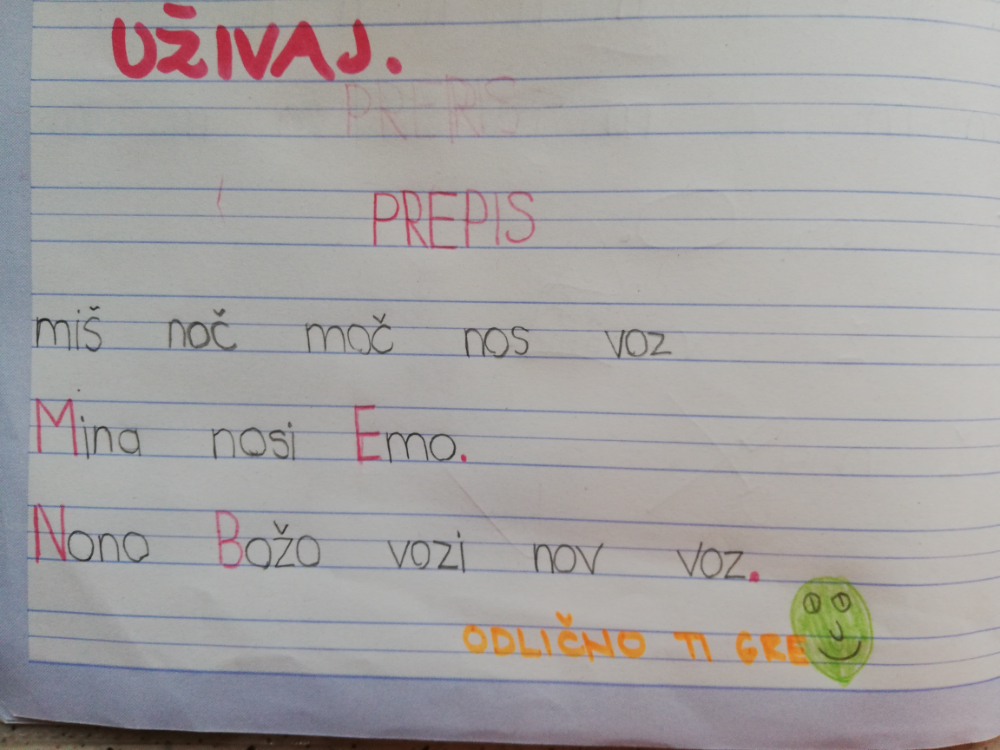 UŽIVAJ.
PREPIS
PREPIS
miš noč moč nos voz
Mina nosi Emo.
Nono Božo vozi nov voz.
ODLIČNO TI GRE